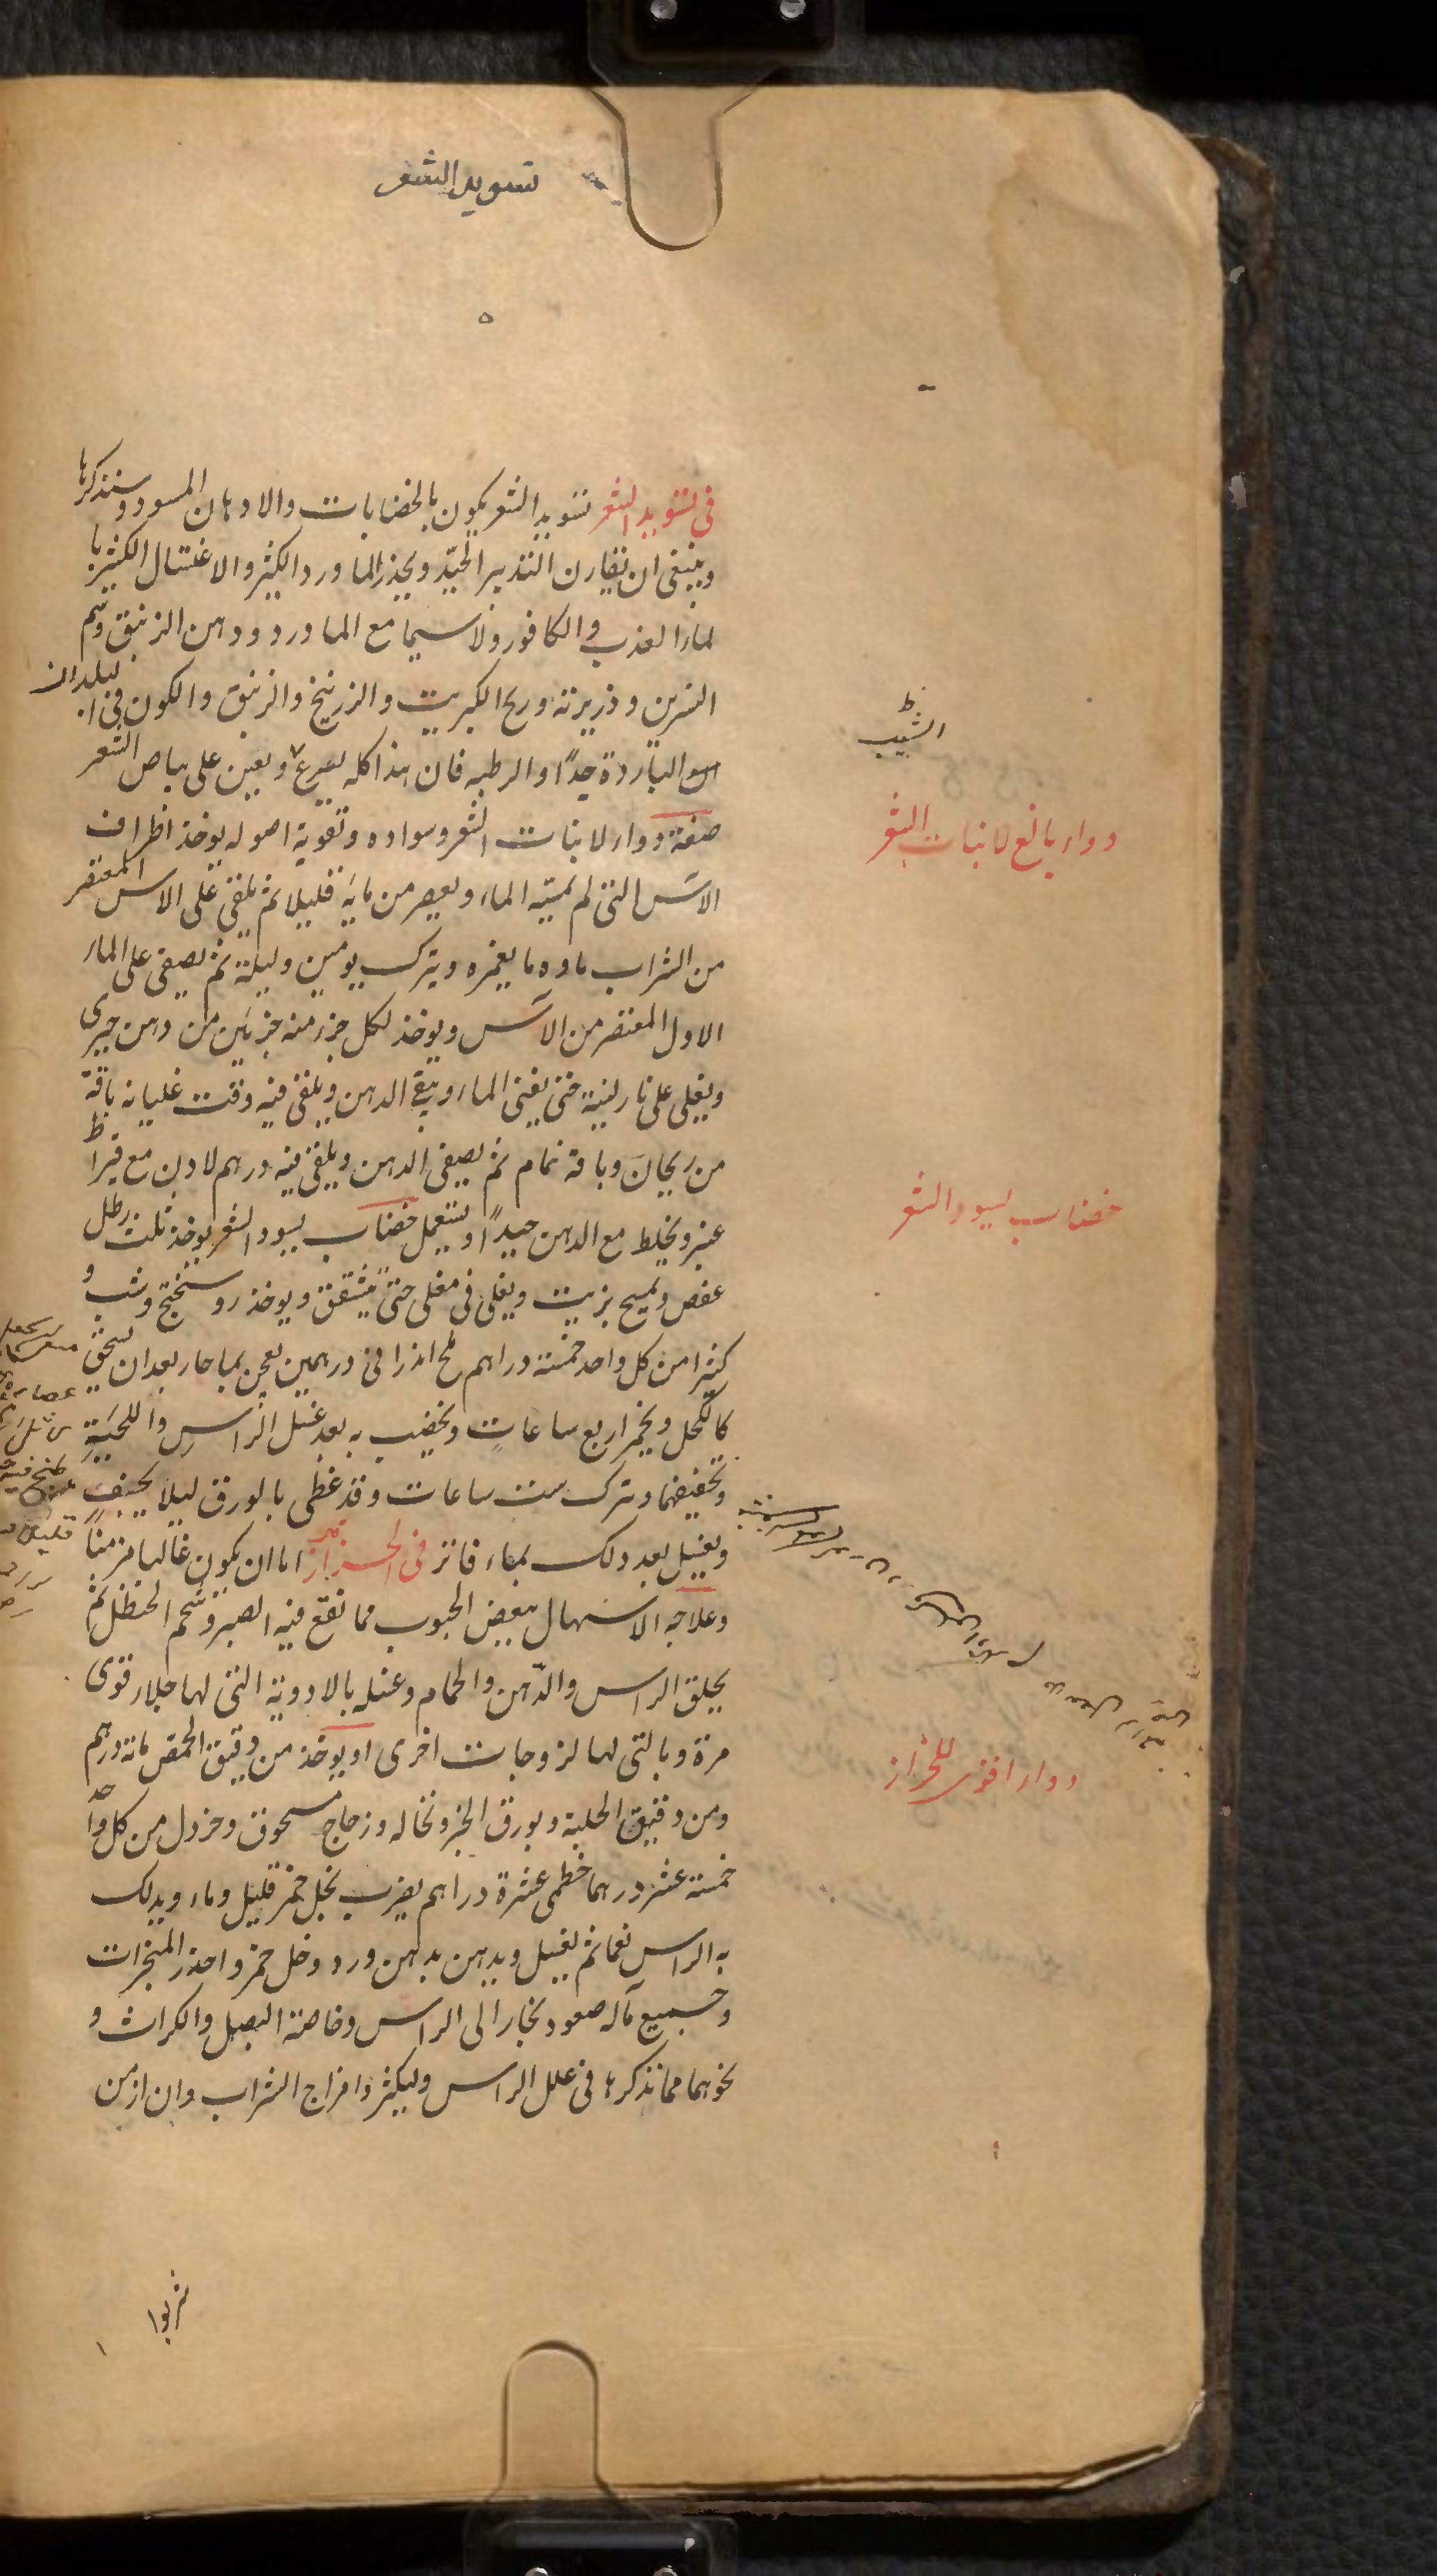 تسويد الشعر
في تسويد الشعر تسويد الشعر يكون بالخضابات والادهان المسودة وسنذكرها
وينبغي ان تقارن التدبير الجيّد ويحذر الماورد الكثير والاغتسال الكثير با
لماء العذب والكافور ولا سيما مع الماورد ودهن الزنبق وشم
النسرين وذريرته وريح الكبريت والزرنيخ والزنبق والكون في البلدان
الباردة جدًا والرطبه فان هذا كله يسرع ويعين على بياض الشعر
الشيب
صفة دواء لانبات الشعر وسواده وتقوية اصوله يوخذ اطراف
دواء بالغ لانبات الشعر
الاس التي لم يمسّه الماء ويعصر من مايه قليلا ثم يلقى على الاس المعتصر
من الشراب ماوه ما يغمره ويترك يومين وليلة ثم يصفى على الماء
الاول المعتصر من الاس ويوخذ لكل جزء منه جزئين من دهن خيرى
ويغلى على نار لينة حتى يفنى الماء ويبقى الدهن ويلقى فيه وقت غليانه باقة
من ريحان وباقة نمام ثم يصفى الدهن ويلقى فيه درهم لادن مع قيراط
عنبر ويخلط مع الدهن جيدًا ويستعمل خضاب يسود الشعر يوخذ ثلث رطل
خضاب يسود الشعر
عفص ويمسح بزيت ويغلى في مغلى حتى يتشقق ويوخذ روسختج وشب و
كثيرا من كل واحد خمسة دراهم ملح اندرانى درهمين يعجن بما حار بعد ان يسحق
كالكحل ويخمر اربع ساعات ويخضب به بعد غسل الراس واللحية
وتجفيفهما ويترك ست ساعات وقد غطى بالورق ليلا يجف
ويغسل بعد ذلك بماء فاتر في الحزاز اما ان يكون غالبا مزمنًا
وعلاجه الاسهال ببعض الحبوب مما تقع فيه الصبر وشحم الحنظل ثم
يحلق الراس والدّهن والحمام وغسله بالادوية التي لها جلاء قوى
مرة وبالتي لها لزوجات اخرى او يوخذ من دقيق الحمص مائة درهم
دواء اقوى للحزاز
ومن دقيق الحلبة وبورق الخبز ونخاله وزجاج مسحوق وخردل من كل واحد
خمسة عشر درهما خطمى عشرة دراهم يضرب بخل خمر قليل وماء ويدلك
به الراس نعما ثم يغسل ويدهن بدهن ورد وخل خمر واحذر المبخرات
وجميع ماله صعود بخار الى الراس وخاصة البصل والكراث و
نحوهما مما نذكرها في علل الراس وليكثر امزاج الشراب وان ازمن